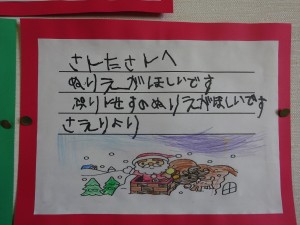 さんたさんへ
ぬりえがほしいです
ぷりんせすのぬりえがほしいです
さえりより